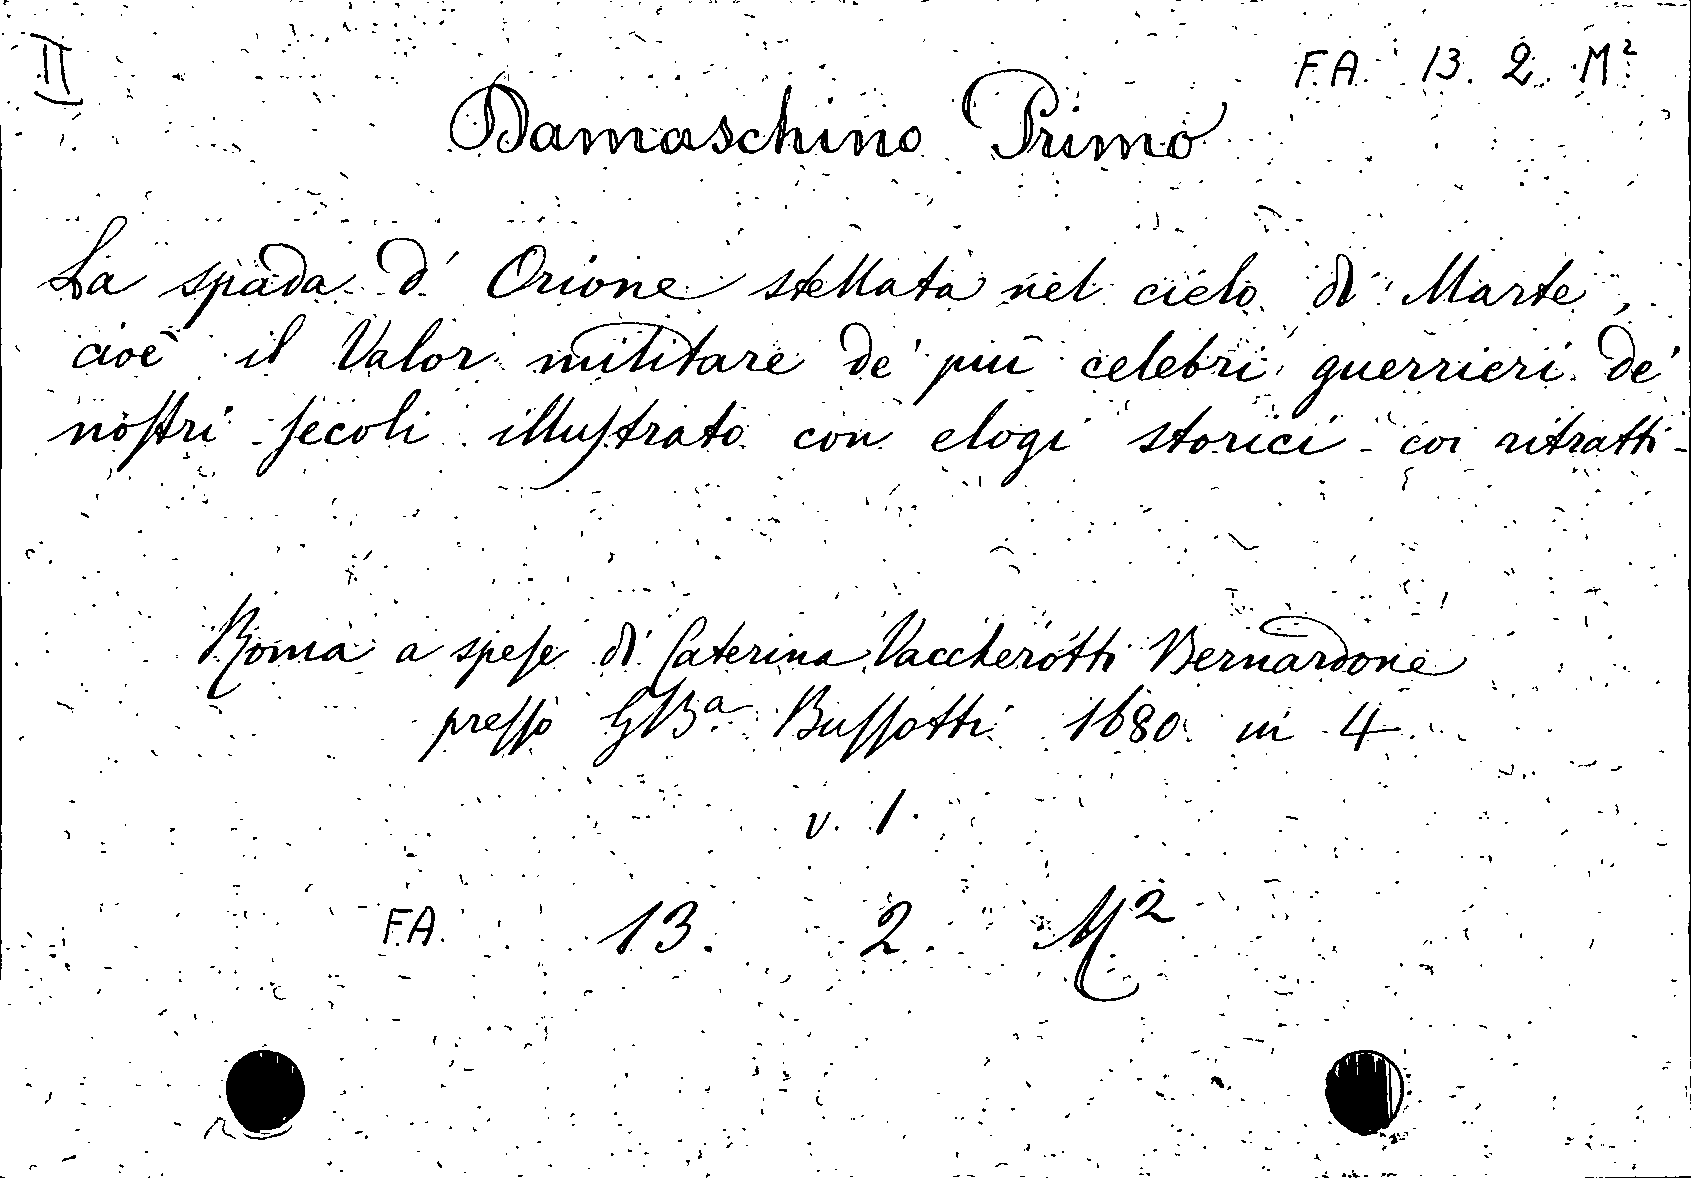 II
F.A. 13. 2. M²
Damaschino Primo
La spada d' Orione stellata nel cielo di Marte,
cioè il Valor militare de' più celebri guerrieri de'
noſtri ſecoli illuſtrato con elogi storici coi ritratti -
Roma a speſe di Caterina Vaccherotti Bernardone
preſſo GBa. Buſſotti 1680 in 4.
v. 1.
F.A. 13. 2. M²